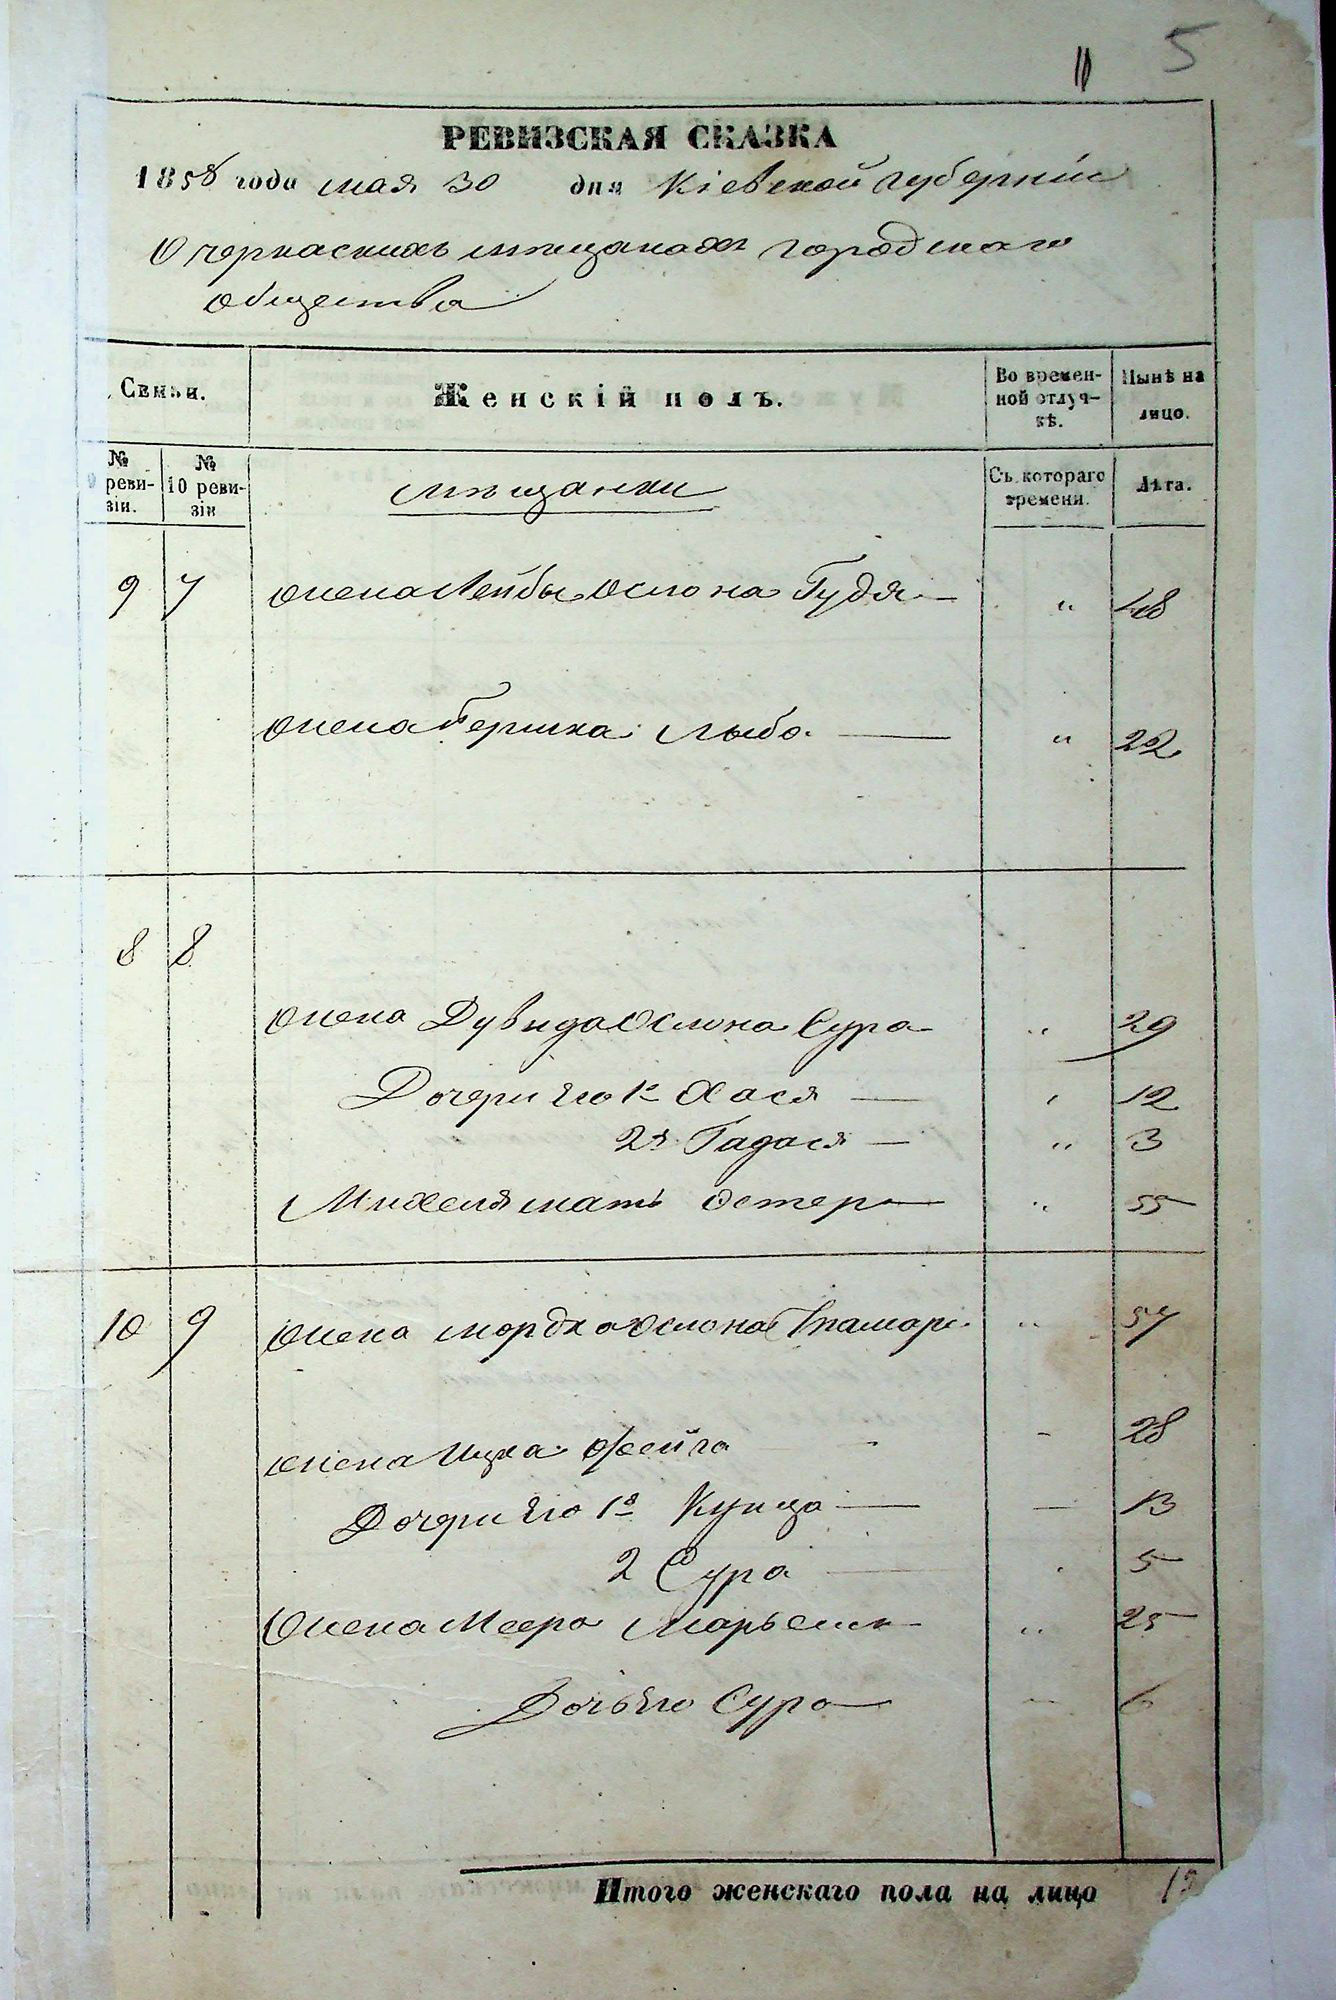 5
РЕВИЗСКАЯ СКАЗКА
1858 года мая 30 дня Кіевской губерніи
О черкаскихъ мѣщанахъ городскаго
общества
Семьи. Женскій полъ. Во времен-ной отлуч-кѣ. Нынѣ на лицо.
№ 9 реви-зіи. № 10 реви-зіи мѣщанки Съ котораго времени. Лѣта.
9 7 жена Лейбы Ослона Гудя — " 48
жена Гершка Лыба — " 22
8 8
жена Дувида Ослона Сура " 29
Дочери его 1я Хася — " 12
2я Гадася — " 3
Михеля мать Эстер — " 55
10 9 жена Мордха Ослона Тамара " 57
жена Ицка Фейга - 28
Дочери его 1я Куница — — 13
2 Сура — 5
Жена Меера Марьем " 25
Дочь его Сура — — 6
Итого женскаго пола на лицо